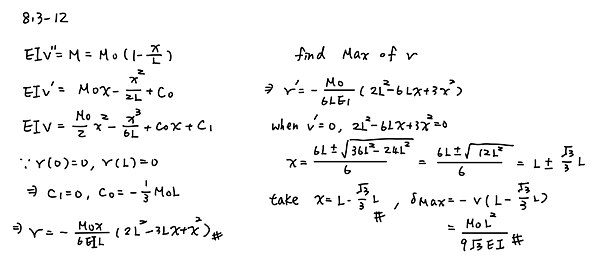 8.3-12
EIv'' = M = M₀ (1 - x/L)
EIv' = M₀x - x²/2L + C₀
EIv = M₀/2 x² - x³/6L + C₀x + C₁
∵ v(0)=0, v(L)=0
⇒ C₁=0, C₀= -1/3 M₀L
⇒ v = - M₀x/6EIL (2L² - 3Lx + x²) #
find Max of v
⇒ v' = - M₀/6LEI (2L² - 6Lx + 3x²)
when v'=0, 2L² - 6Lx + 3x² = 0
x = (6L ± √(36L² - 24L²))/6 = (6L ± √(12L²))/6 = L ± √3/3 L
take x = L - √3/3 L #, δMax = - v(L - √3/3 L)
= M₀L²/9√3 EI #